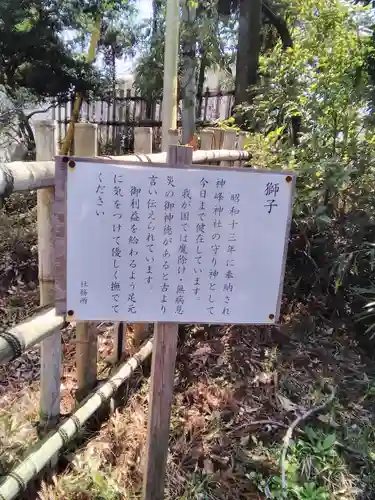 獅子
昭和十三年に奉納され
神峰神社の守り神として
今日まで健在しています。
我が国では魔除け・無病息
災の御神徳があると古より
言い伝えられています。
御利益を給わる様、足元
に気をつけて優しく撫でて
ください
社務所